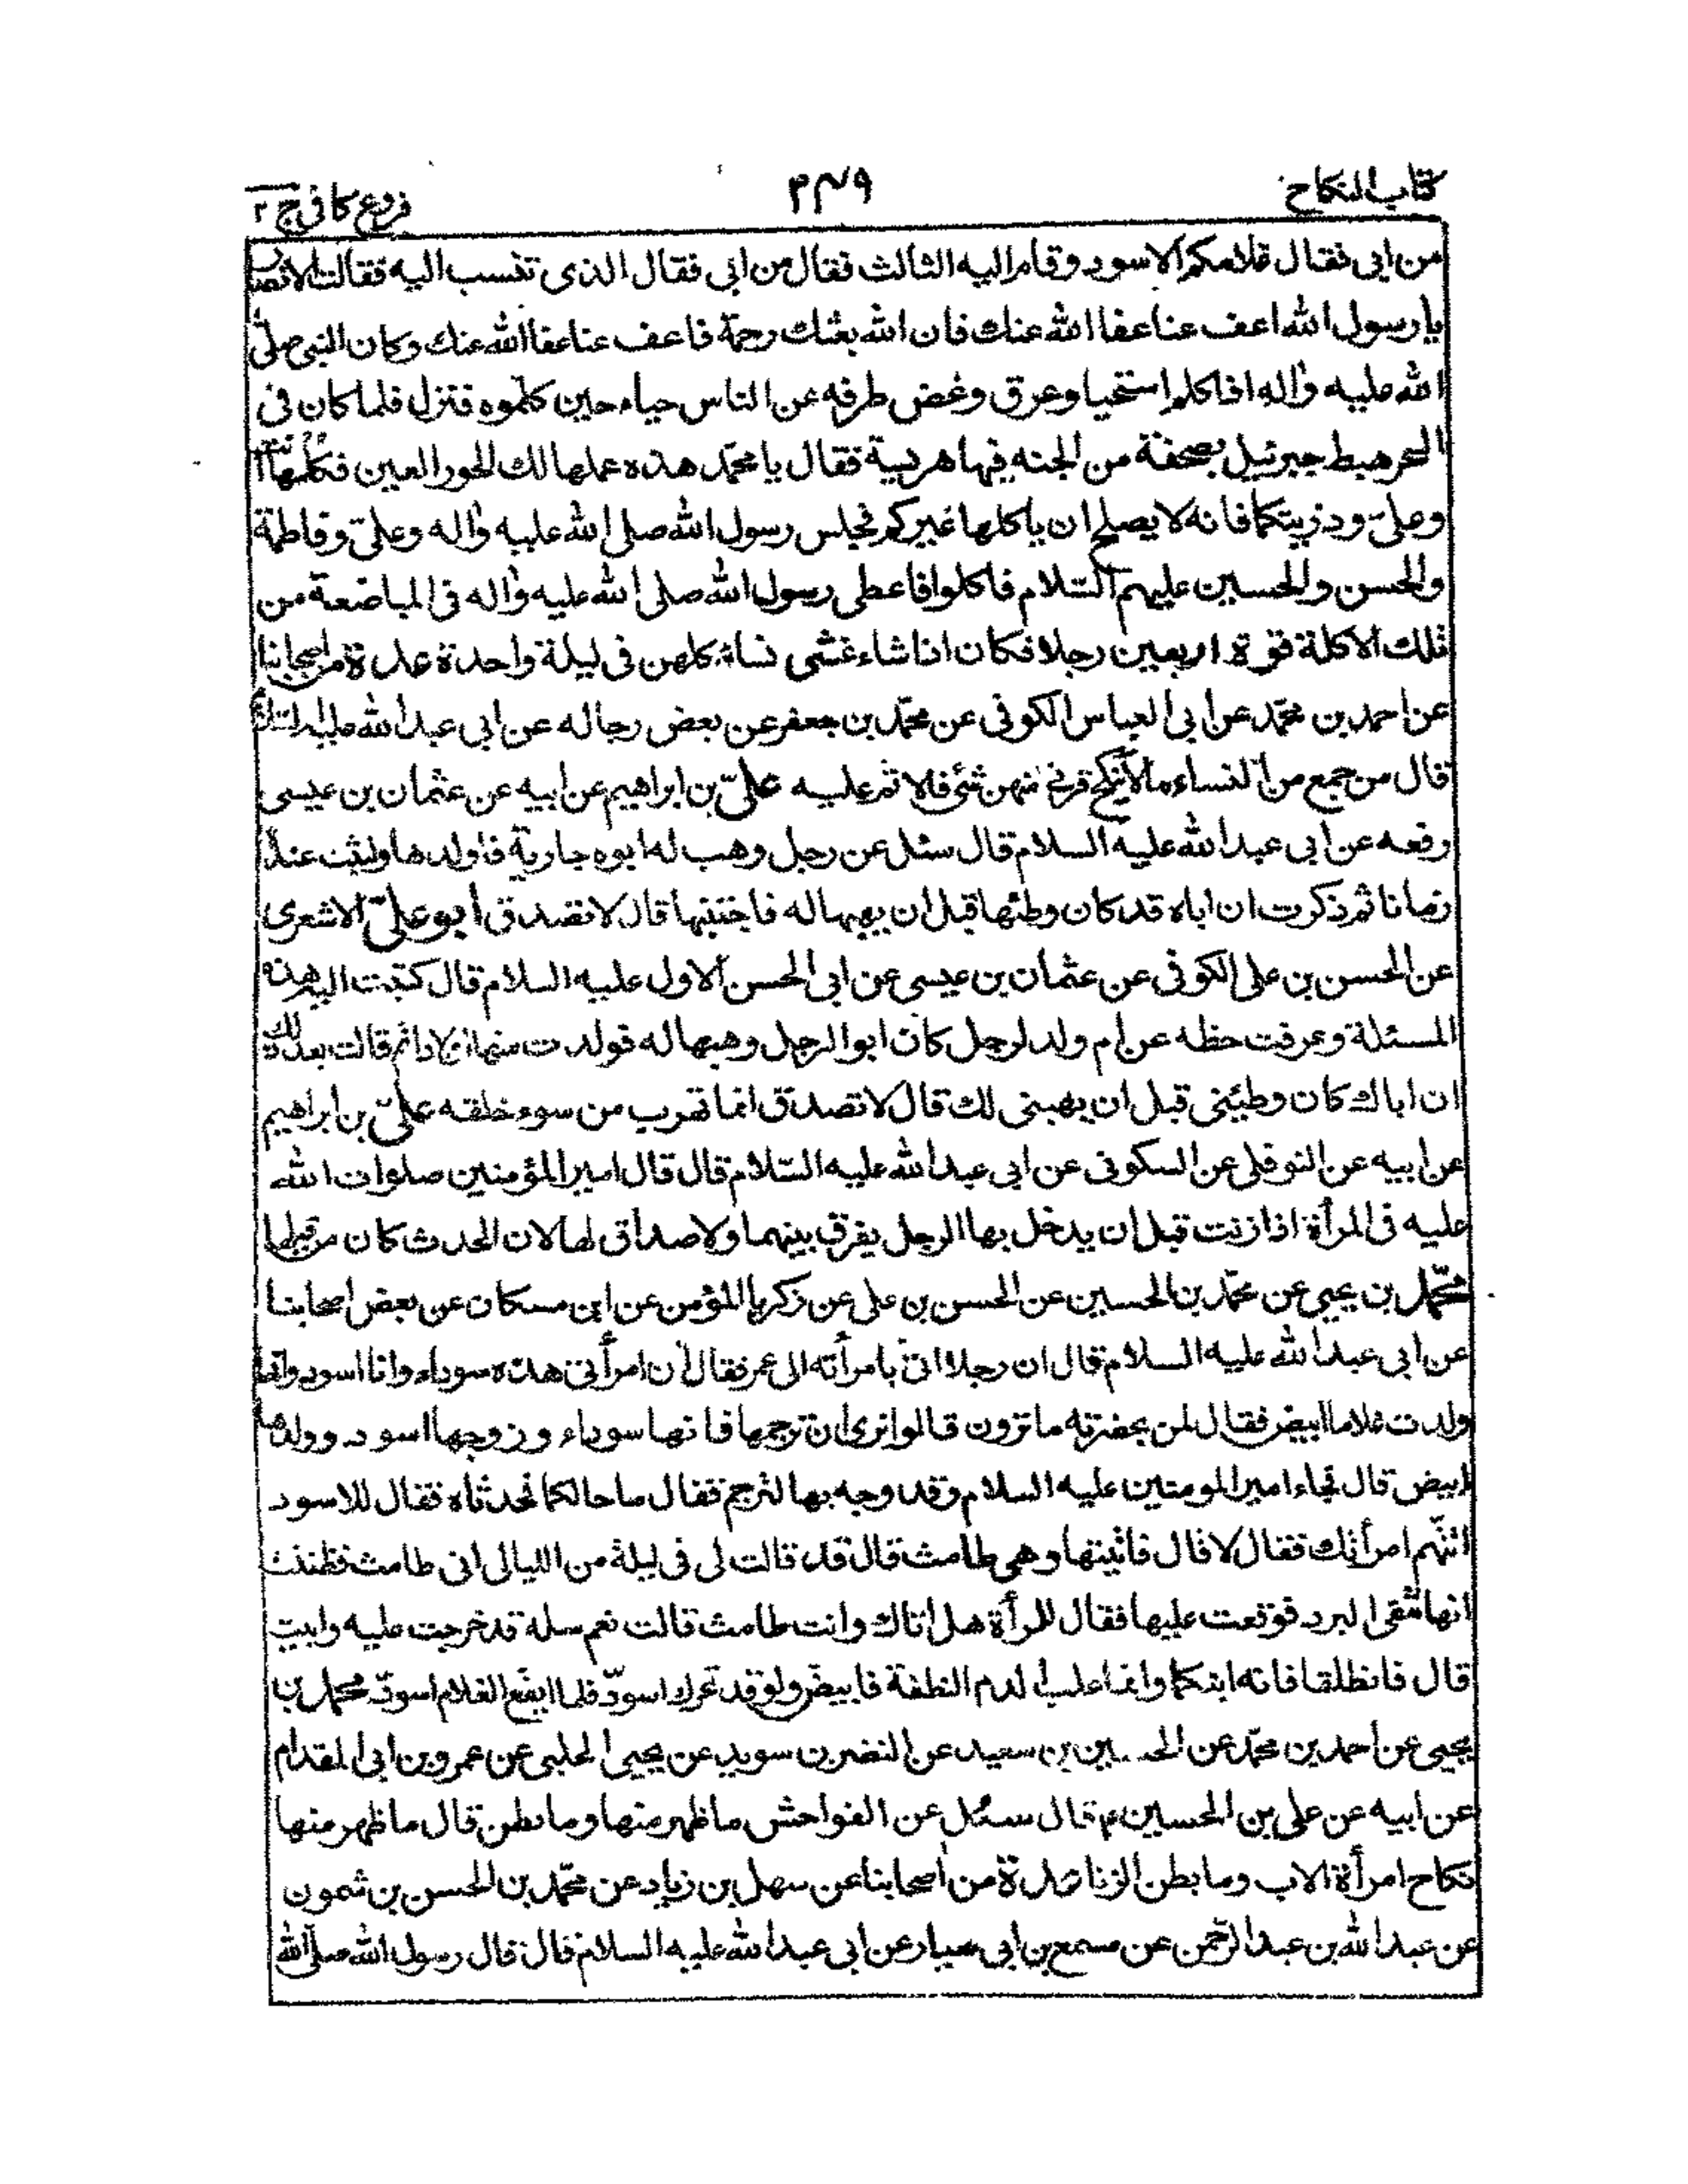 كتاب النكاح
٢٤٩
فروع كافى ج ٢
من ابى فقال غلامكم الاسود وقام اليه الثالث فقال من ابى فقال الذى تنسب اليه فقالت الانصار
يا رسول الله اعف عنا عفا الله عنك فان الله بعثك رحمة فاعف عنا عفا الله عنك وكان النبى صلى
الله عليه واله اذا كلم استحيا وعرق وغض طرفه عن الناس حياء حين كلموه فنزل فلما كان فى
السحر هبط جبرئيل بصحفة من الجنه فيها هريسة فقال يا محمد هذه عملها لك الحور العين فكلها انت
وعلى وذريتكما فانه لا يصلح ان ياكلها غيركم فجلس رسول الله صلى الله عليه واله وعلى وفاطمة
والحسن والحسين عليهم السلام فاكلوا فاعطى رسول الله صلى الله عليه واله فى المباضعة من
تلك الاكلة قوة اربعين رجلا فكان اذا شاء غشى نسائه كلهن فى ليلة واحدة عدة من اصحابنا
عن احمد بن محمد عن ابى العباس الكوفى عن محمد بن جعفر عن بعض رجاله عن ابى عبد الله عليه السلام
قال من جمع من النساء ما لا ينكح فزنى منهن شئ فالاثم عليه على بن ابراهيم عن ابيه عن عثمان بن عيسى
رفعه عن ابى عبد الله عليه السلام قال سئل عن رجل وهب له ابوه جارية فاولدها ولبثت عنده
زمانا ثم ذكرت ان اباه قد كان وطئها قبل ان يهبها له فاجتنبها قال لا تصدق ابو على الاشعرى
عن الحسن بن على الكوفى عن عثمان بن عيسى عن ابى الحسن الاول عليه السلام قال كتبت اليه هذه
المسئلة وعرفت خطه عن ام ولد لرجل كان ابو الرجل وهبها له فولدت منه اولادا ثم قالت بعد ذلك
ان اباك كان وطئنى قبل ان يهبنى لك قال لا تصدق انما تهرب من سوء خلقه على بن ابراهيم
عن ابيه عن النوفلى عن السكونى عن ابى عبد الله عليه السلام قال قال امير المؤمنين صلوات الله
عليه فى المرأة اذا زنت قبل ان يدخل بها الرجل يفرق بينهما ولا صداق لها لان الحدث كان من قبلها
محمد بن يحيى عن محمد بن الحسين عن الحسن بن على عن زكريا المؤمن عن ابن مسكان عن بعض اصحابنا
عن ابى عبد الله عليه السلام قال ان رجلا اتى بامرأته الى عمر فقال ان امرأتى هذه سوداء وانا اسود وانها
ولدت غلاما ابيض فقال لمن بحضرته ما ترون قالوا نرى ان ترجمها فانها سوداء وزوجها اسود وولدها
ابيض قال فجاء امير المومنين عليه السلام وقد وجه بها لترجم فقال ما حالكما فحدثاه فقال للاسود
اتتهم امرأتك فقال لا قال فاتيتها وهى طامث قال قد قالت لى فى ليلة من الليالى انى طامث فظننت
انها تتقى البرد فوقعت عليها فقال للمرأة هل اتاك وانت طامث قالت نعم سله قد خرجت عليه وابيت
قال فانطلقا فانه ابنكما وانما غلب الدم النطفة فابيض ولو قد تحرك اسود فلما ايفع الغلام اسود محمد بن
يحيى عن احمد بن محمد عن الحسين بن سعيد عن النضر بن سويد عن يحيى الحلبى عن عمرو بن ابى المقدام
عن ابيه عن على بن الحسين ع قال سئل عن الفواحش ما ظهر منها وما بطن قال ما ظهر منها
نكاح امرأة الاب وما بطن الزنا عدة من اصحابنا عن سهل بن زياد عن محمد بن الحسن بن شمون
عن عبد الله بن عبد الرحمن عن مسمع بن ابى سيار عن ابى عبد الله عليه السلام قال قال رسول الله صلى الله